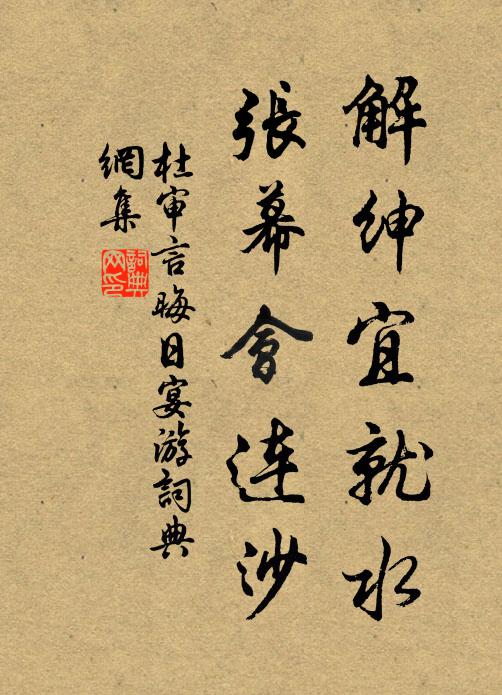 解紳宜就水
張幕會連沙
杜審言晦日宴游詞典
網集
詞典
网印